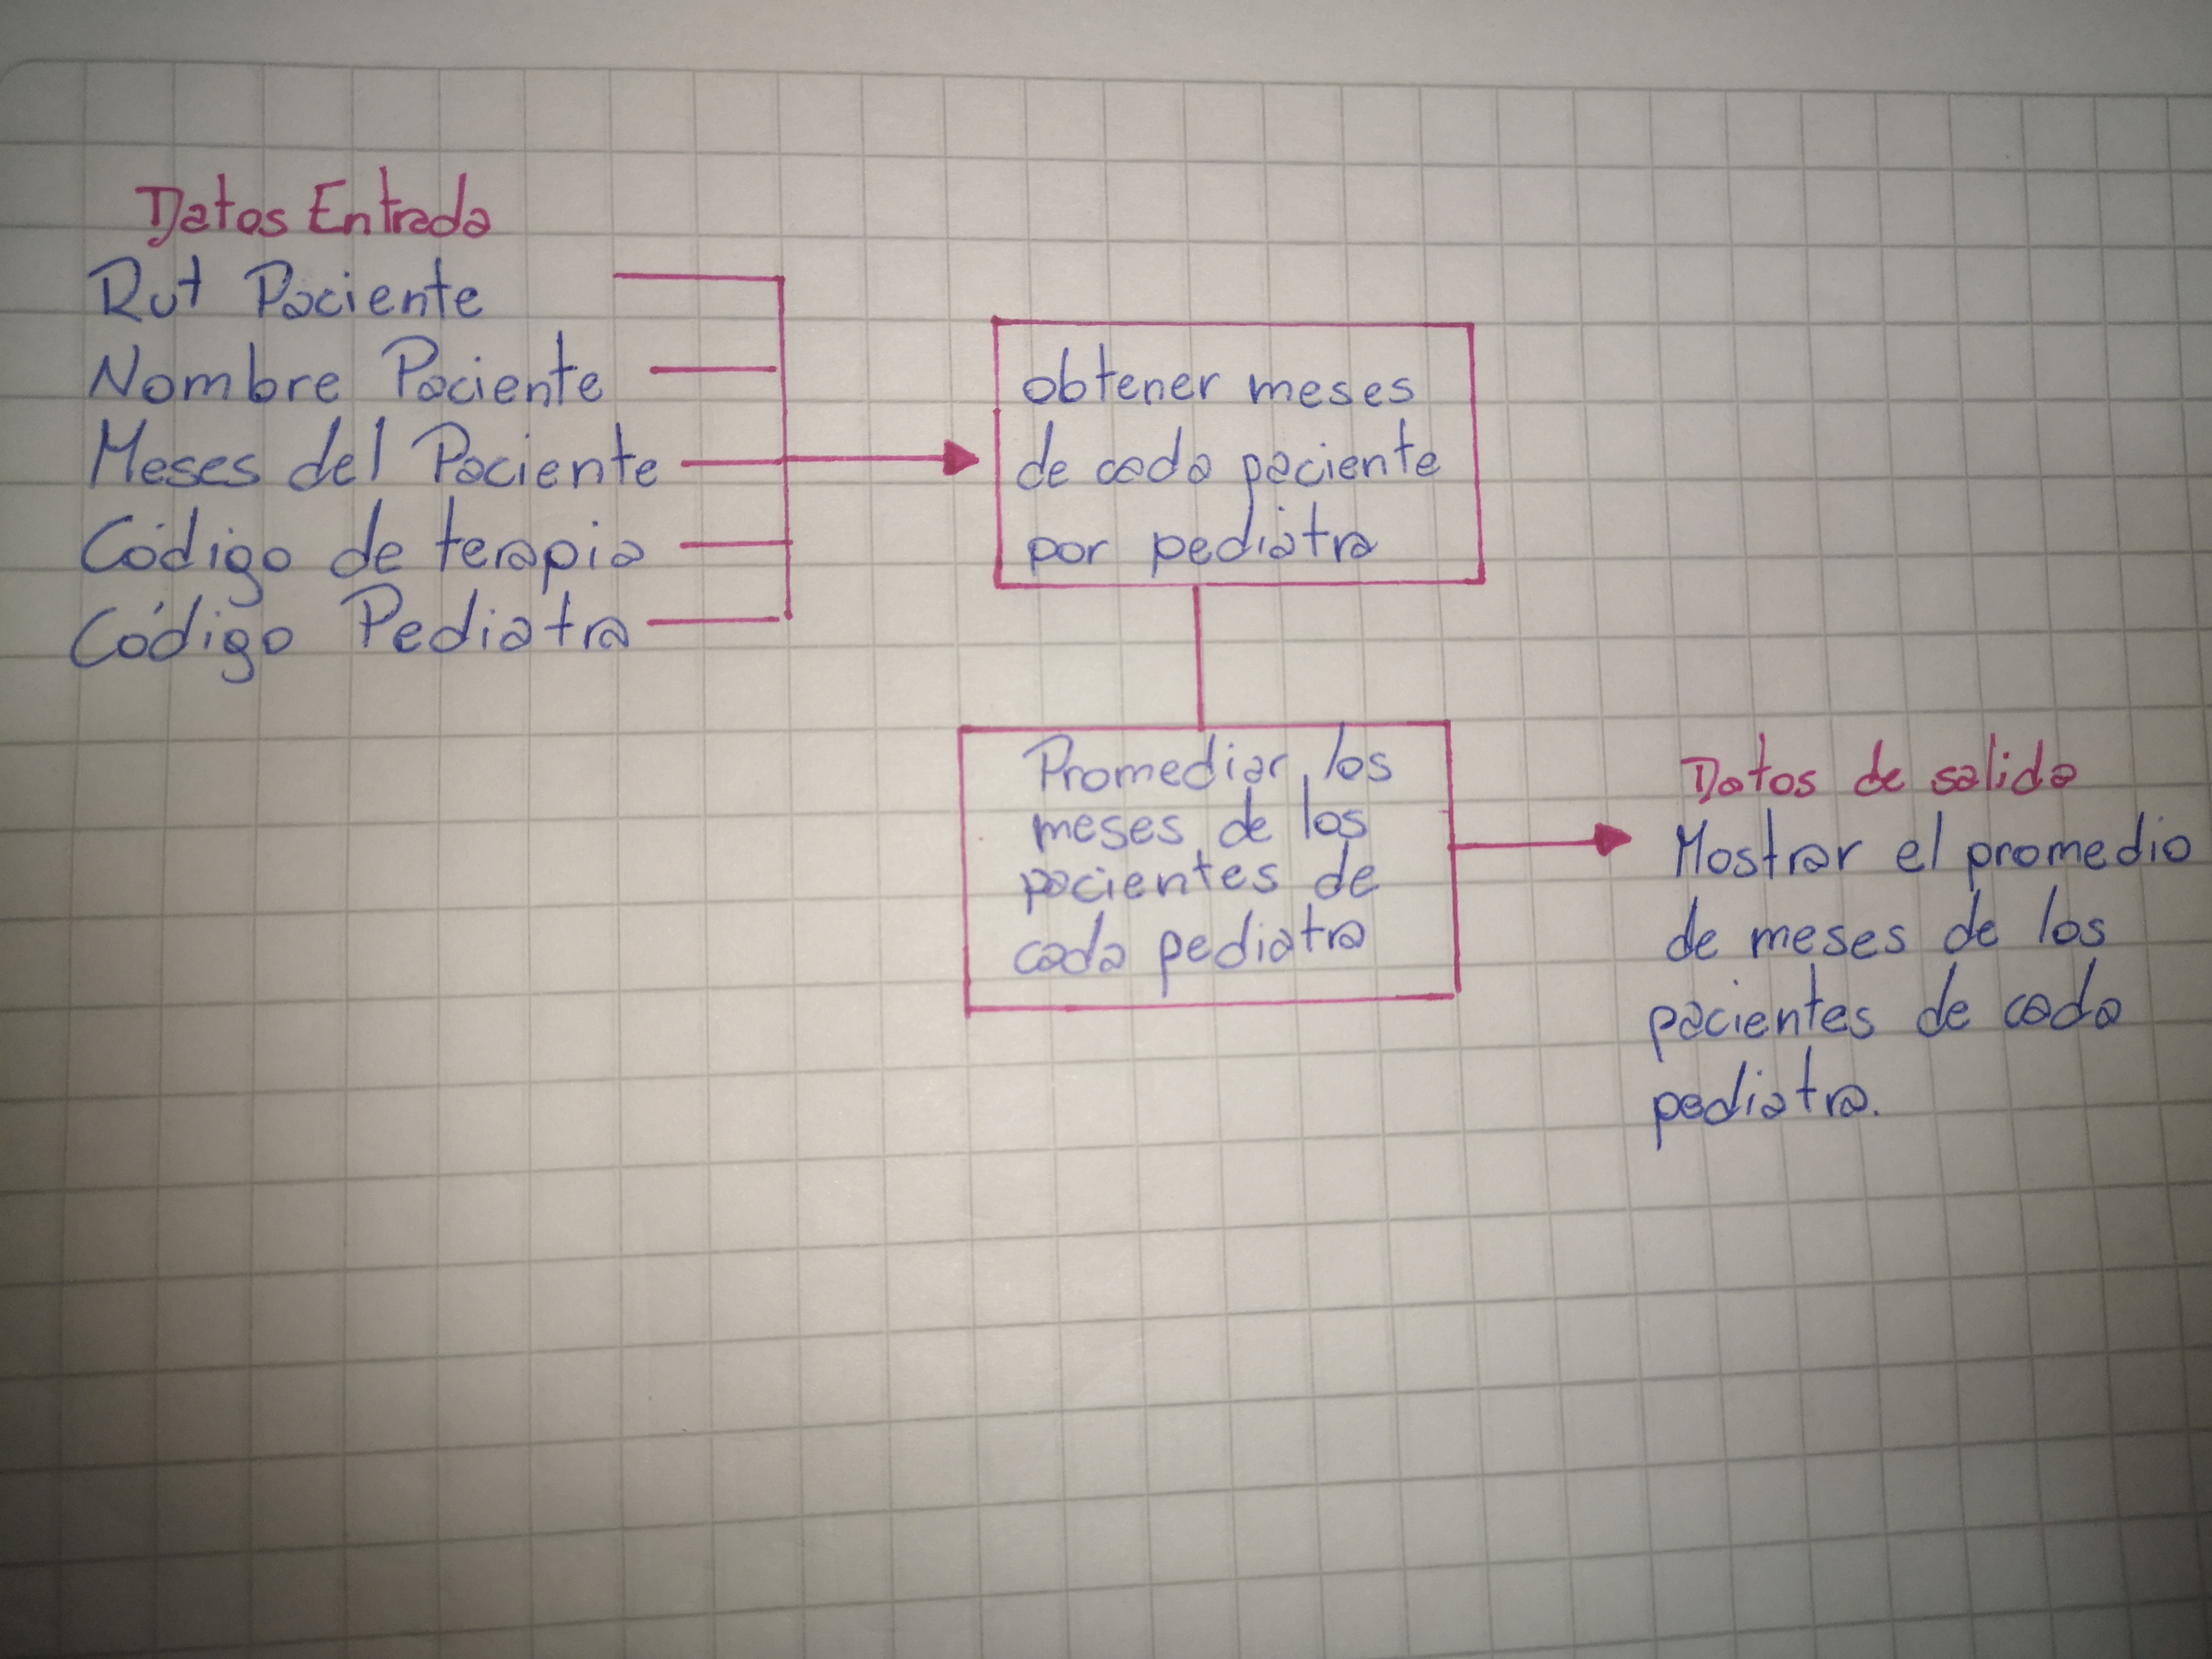 Datos Entrada
Rut Paciente
Nombre Paciente
Meses del Paciente
Código de terapia
Código Pediatra
obtener meses
de cada paciente
por pediatra
Promediar los
meses de los
pacientes de
cada pediatra
Datos de salida
Mostrar el promedio
de meses de los
pacientes de cada
pediatra.